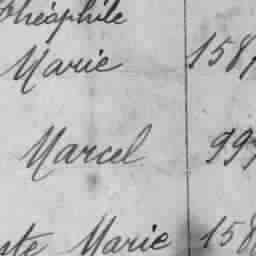 Théophile
Marie 158
Marcel 99
Marie 158